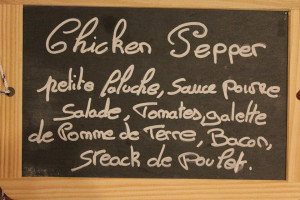 Chicken Pepper
petite Paluche, Sauce poivre
Salade, Tomates, galette
de Pomme de Terre, Bacon,
Steack de Poulet.